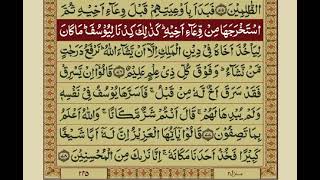 الظّٰلِمِیْنَ فَبَدَاَ بِاَوْعِیَتِهِمْ قَبْلَ وِعَآءِ اَخِیْهِ ثُمَّ
اسْتَخْرَجَهَا مِنْ وِّعَآءِ اَخِیْهِ ؕ كَذٰلِكَ كِدْنَا لِیُوْسُفَ ؕ مَا كَانَ
لِیَاْخُذَ اَخَاهُ فِیْ دِیْنِ الْمَلِكِ اِلَّاۤ اَنْ یَّشَآءَ اللّٰهُ ؕ نَرْفَعُ دَرَجٰتٍ
مَّنْ نَّشَآءُ ؕ وَفَوْقَ كُلِّ ذِیْ عِلْمٍ عَلِیْمٌ قَالُوْۤا اِنْ یَّسْرِقْ
فَقَدْ سَرَقَ اَخٌ لَّهٗ مِنْ قَبْلُ ۚ فَاَسَرَّهَا یُوْسُفُ فِیْ نَفْسِهٖ
وَلَمْ یُبْدِهَا لَهُمْ ۚ قَالَ اَنْتُمْ شَرٌّ مَّكَانًا ۚ وَاللّٰهُ اَعْلَمُ
بِمَا تَصِفُوْنَ قَالُوْا یٰۤاَیُّهَا الْعَزِیْزُ اِنَّ لَهٗۤ اَبًا شَیْخًا
كَبِیْرًا فَخُذْ اَحَدَنَا مَكَانَهٗ ۚ اِنَّا نَرٰىكَ مِنَ الْمُحْسِنِیْنَ
۲۴۵